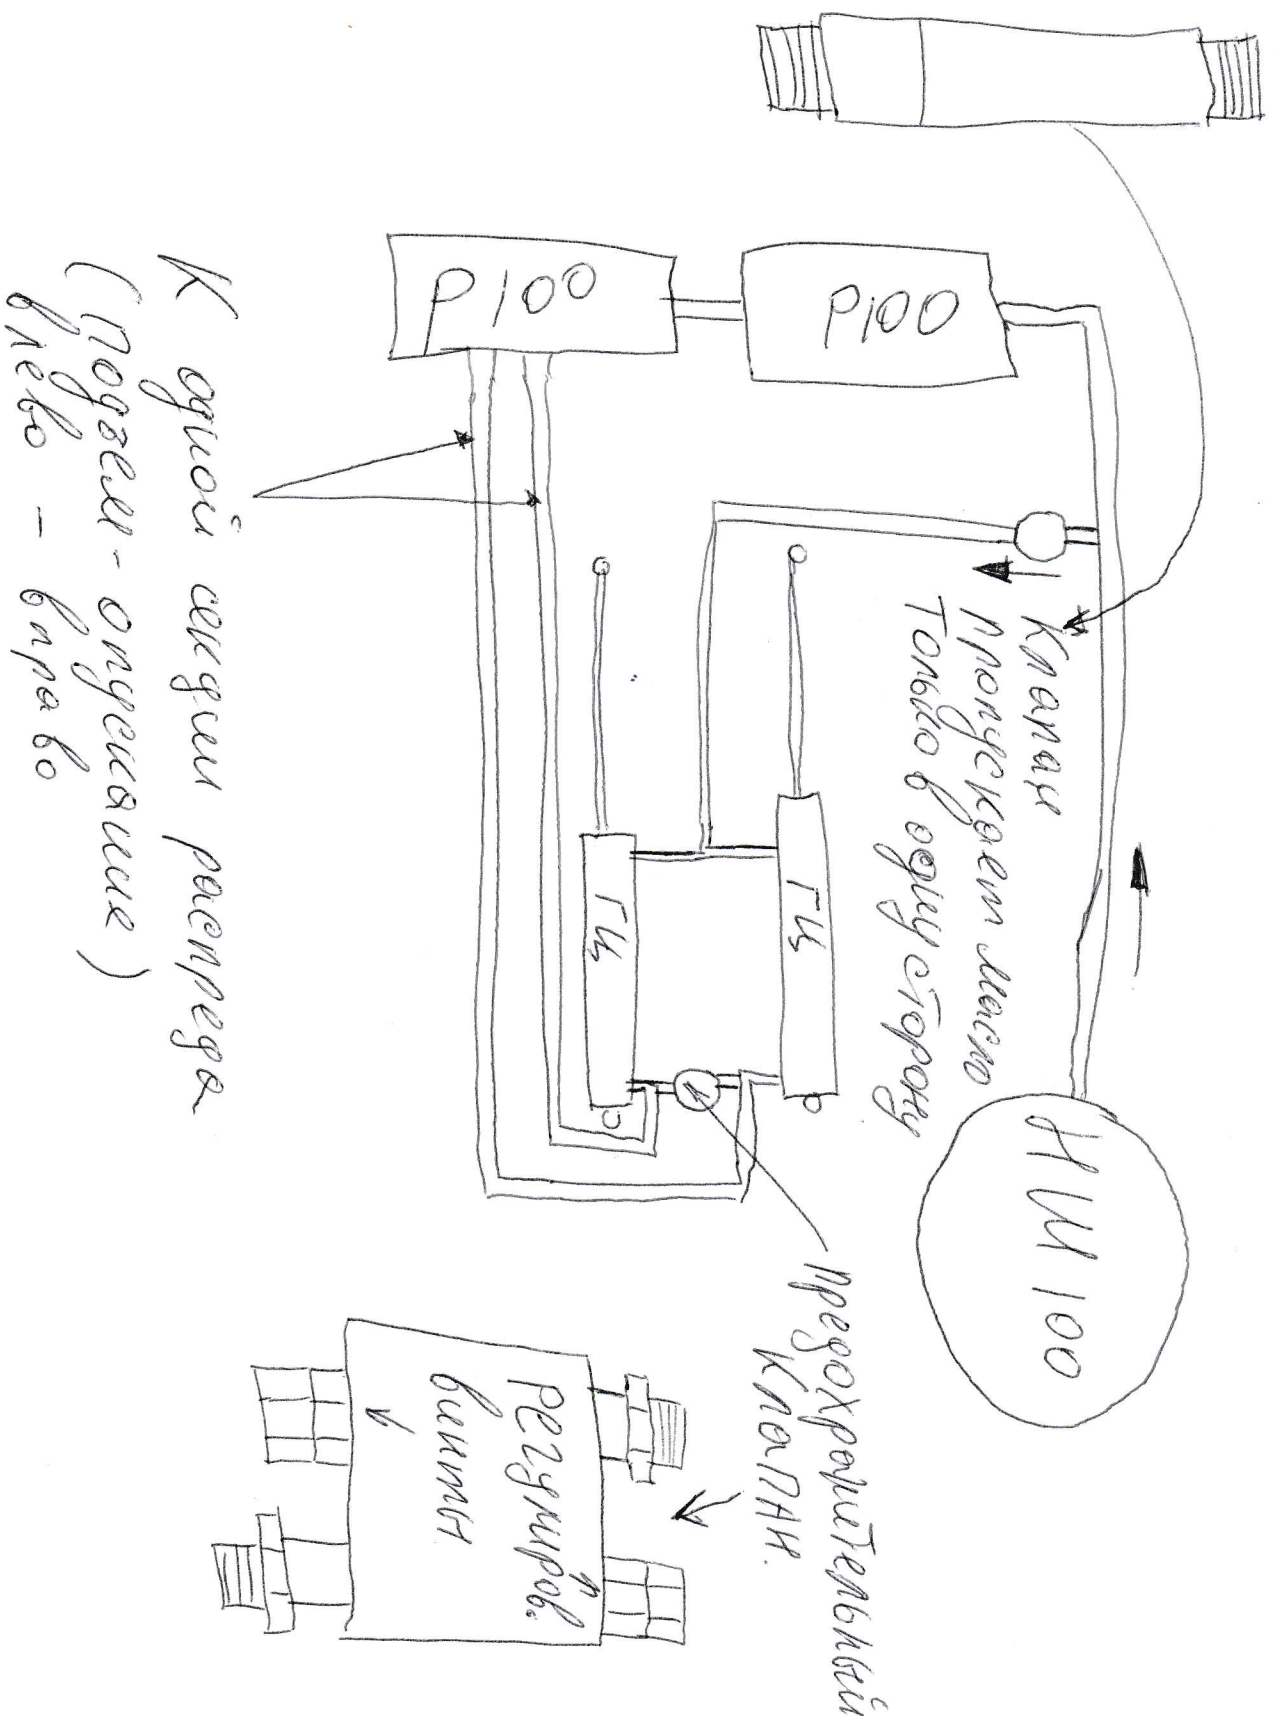 НШ 100
Р100
Р100
Клапан
пропускает масло
только в одну сторону
ГЦ
ГЦ
предохранительный
клапан.
Регулиров.
винты
К одной секции распреда
(подъем - опускание)
влево - вправо